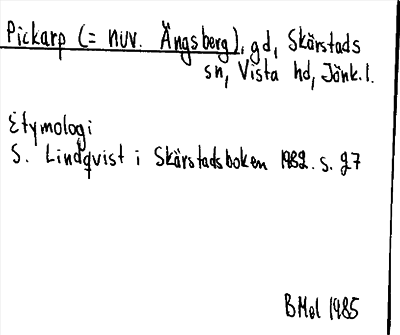 Pickarp (= nuv. Ängsberg), gd, Skärstads
sn, Vista hd, Jönk.l.
Etymologi
S. Lindqvist i Skärstadsboken 1982. s. 27
BMel 1985